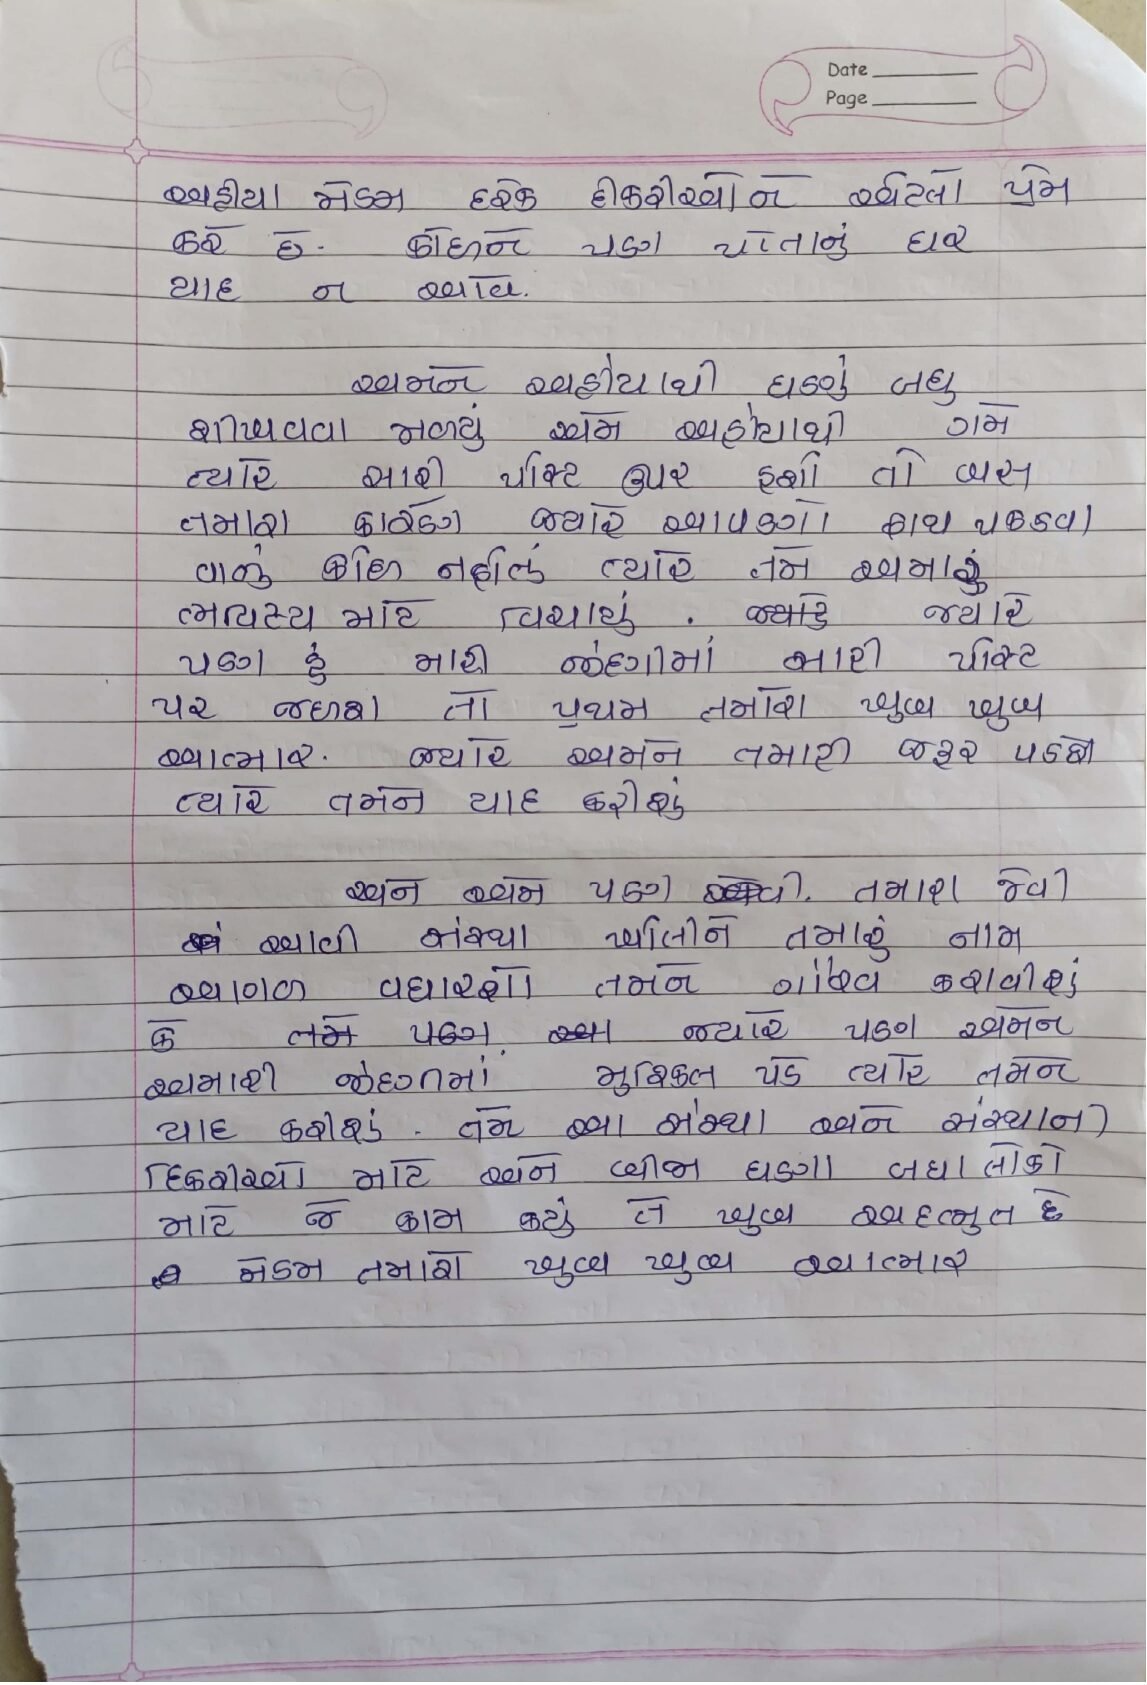 Date
Page
અહીયા મેડમ દરેક દીકરીઓને એટલો પ્રેમ
કરે છે. કોઈને પણ પોતાનું ઘર
યાદ ન આવે.
અમને અહીયાથી ઘણું બધુ
શીખવવા મળ્યું અમે અહીયાથી ગમે
ત્યારે સારી પોસ્ટ ઉપર હશો તો બસ
તમારા કારણે જ્યારે આપણો હાથ પકડવા
વાળું કોઈ નહોતું ત્યારે તમે અમારું
ભવિસ્ય માટે વિચાર્યું. જ્યારે જ્યારે
પણ હું મારી જીંદગીમાં સારી પોસ્ટ
પર જઈશ તો પ્રથમ તમારો ખુબ ખુબ
આભાર. જ્યારે અમને તમારી જરૂર પડશે
ત્યારે તમને યાદ કરીશું
અને અમે પણ તમારા જેવી
આવી સંસ્થા ખોલીને તમારું નામ
આગળ વધારશો તમને ગૌરવ કરાવીશું
કે જ્યારે પણ અમને
અમારી જીંદગમાં મુશ્કિલ પડે ત્યારે તમને
યાદ કરીશું. તમે આ સંસ્થા અને સંસ્થાની
દિકરીઓ માટે અને બીજા ઘણા બધા લોકો
માટે જે કામ કર્યું તે ખુબ અદભુત છે
મેડમ તમારો ખુબ ખુબ આભાર